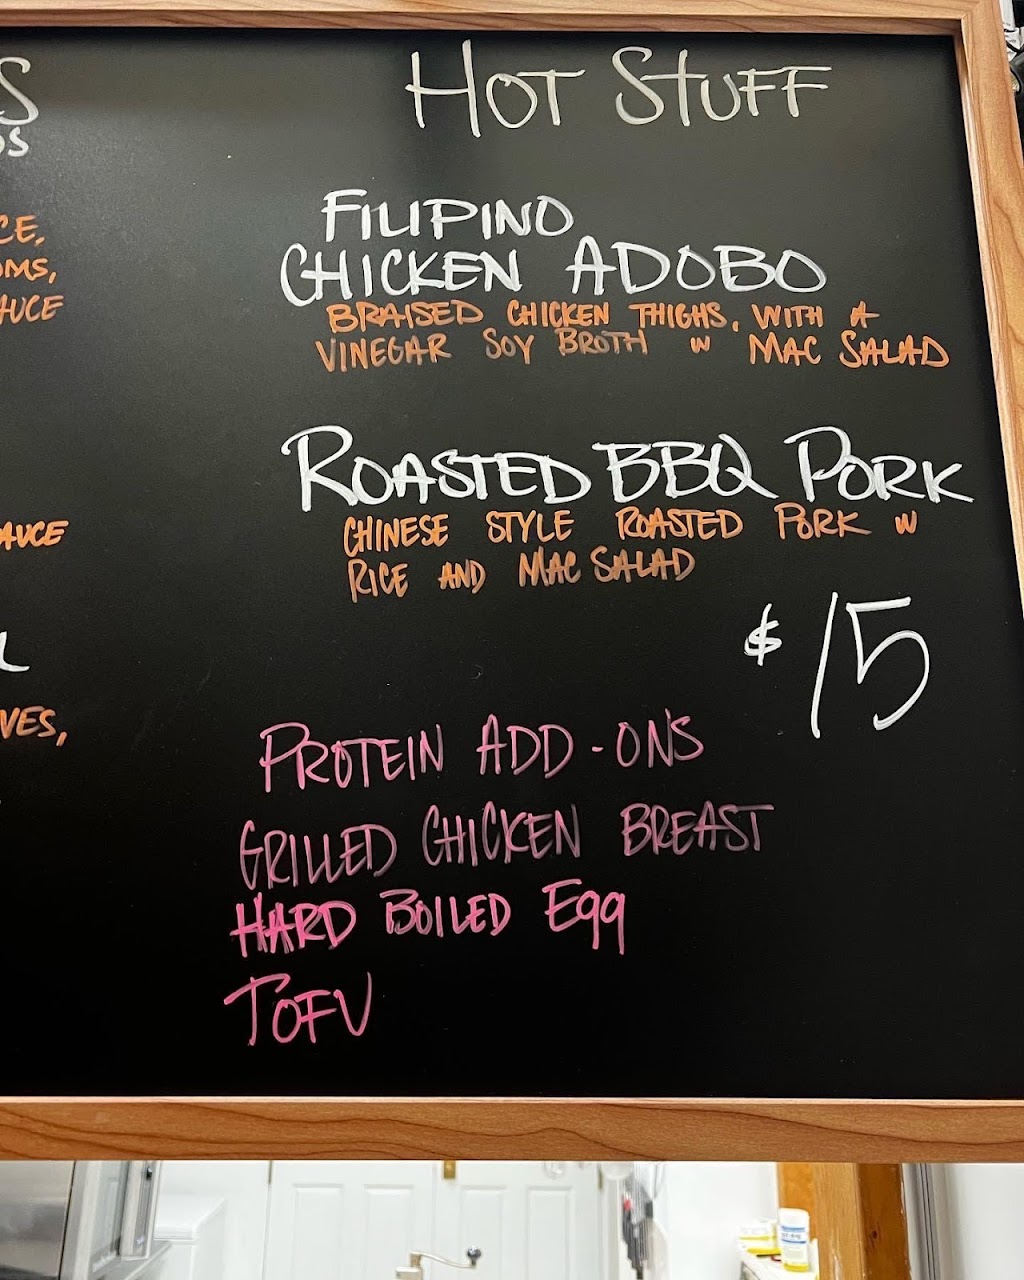 S
DS
CE,
OMS,
AUCE
AUCE
VES,
HOT STUFF
FILIPINO
CHICKEN ADOBO
BRAISED CHICKEN THIGHS, WITH A
VINEGAR SOY BROTH W MAC SALAD
ROASTED BBQ PORK
CHINESE STYLE ROASTED PORK W
RICE AND MAC SALAD
$15
PROTEIN ADD-ONS
GRILLED CHICKEN BREAST
HARD BOILED Egg
TOFU